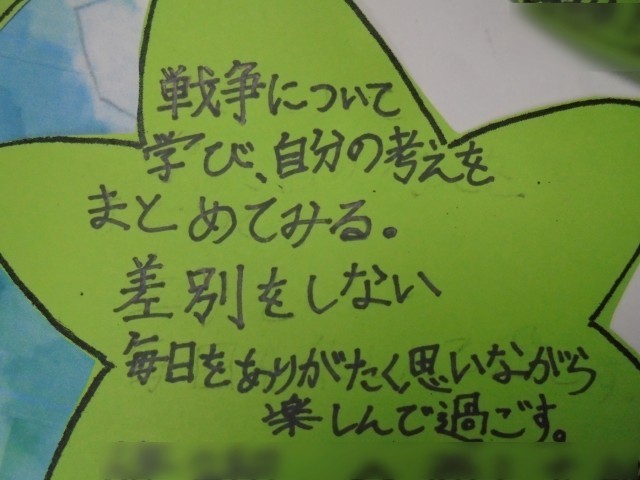 戦争について
学び、自分の考えを
まとめてみる。
差別をしない
毎日をありがたく思いながら
楽しんで過ごす。